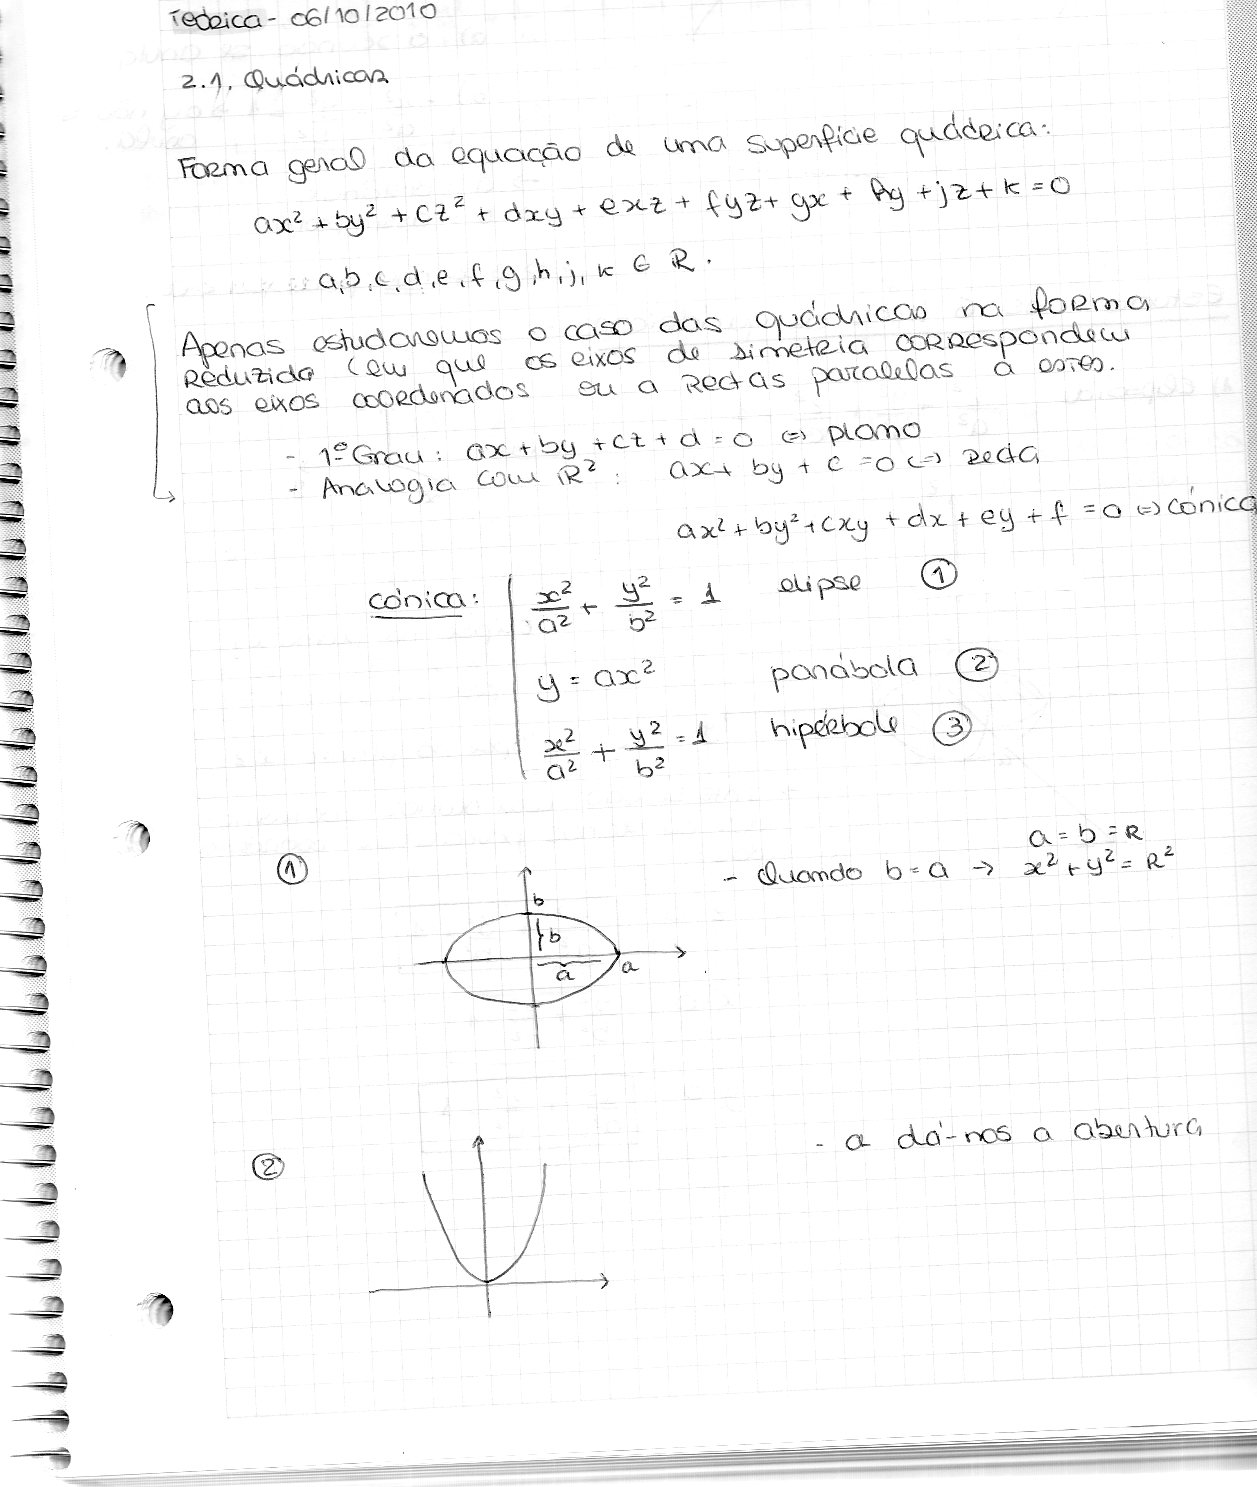 Teórica - 06/10/2010
2.1. Quádricas
Forma geral da equação de uma superfície quádrica:
ax² + by² + cz² + dxy + exz + fyz + gx + hy + jz + k = 0
a, b, c, d, e, f, g, h, j, k ∈ R.
Apenas estudaremos o caso das quádricas na forma
reduzida (em que os eixos de simetria correspondem
aos eixos coordenados ou a rectas paralelas a estes.
- 1º Grau: ax + by + cz + d = 0 ⇔ plano
- Analogia com R²: ax + by + c = 0 ⇔ recta
ax² + by² + cxy + dx + ey + f = 0 ⇔ cónica
cónica: x²/a² + y²/b² = 1 elipse ①
y = ax² parábola ②
x²/a² + y²/b² = 1 hipérbole ③
a = b = R
① - Quando b = a → x² + y² = R²
b
b
a a
② - a dá-nos a abertura